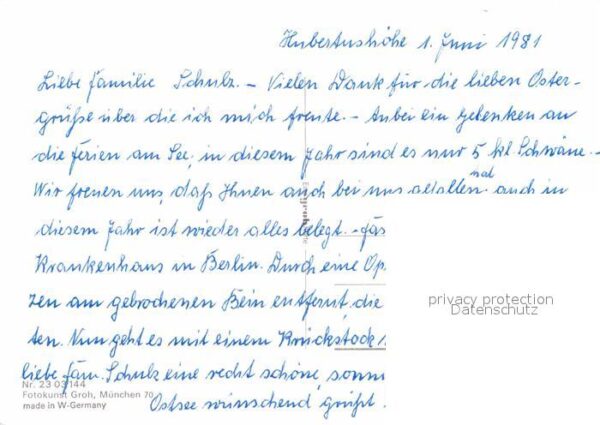 Hubertushöhe 1. Juni 1981
Liebe Familie Schulz. – Vielen Dank für die lieben Oster-
grüße über die ich mich freute. – Anbei ein Gedenken an
die Ferien am See, in diesem Jahr sind es nur 5 kl. Schwäne. –
Wir freuen uns, daß Ihnen auch bei uns gefallen hat auch in
diesem Jahr ist wieder alles belegt. –
Krankenhaus in Berlin. Durch eine Op.
zen am gebrochenen Bein entfernt, die
ten. Nun geht es mit einem Krückstock
liebe Fam. Schulz eine recht schöne, sonn
Ostsee wünschend grüßt
privacy protection
Datenschutz
Nr. 23 03 144
Fotokunst Groh, München 70
made in W-Germany